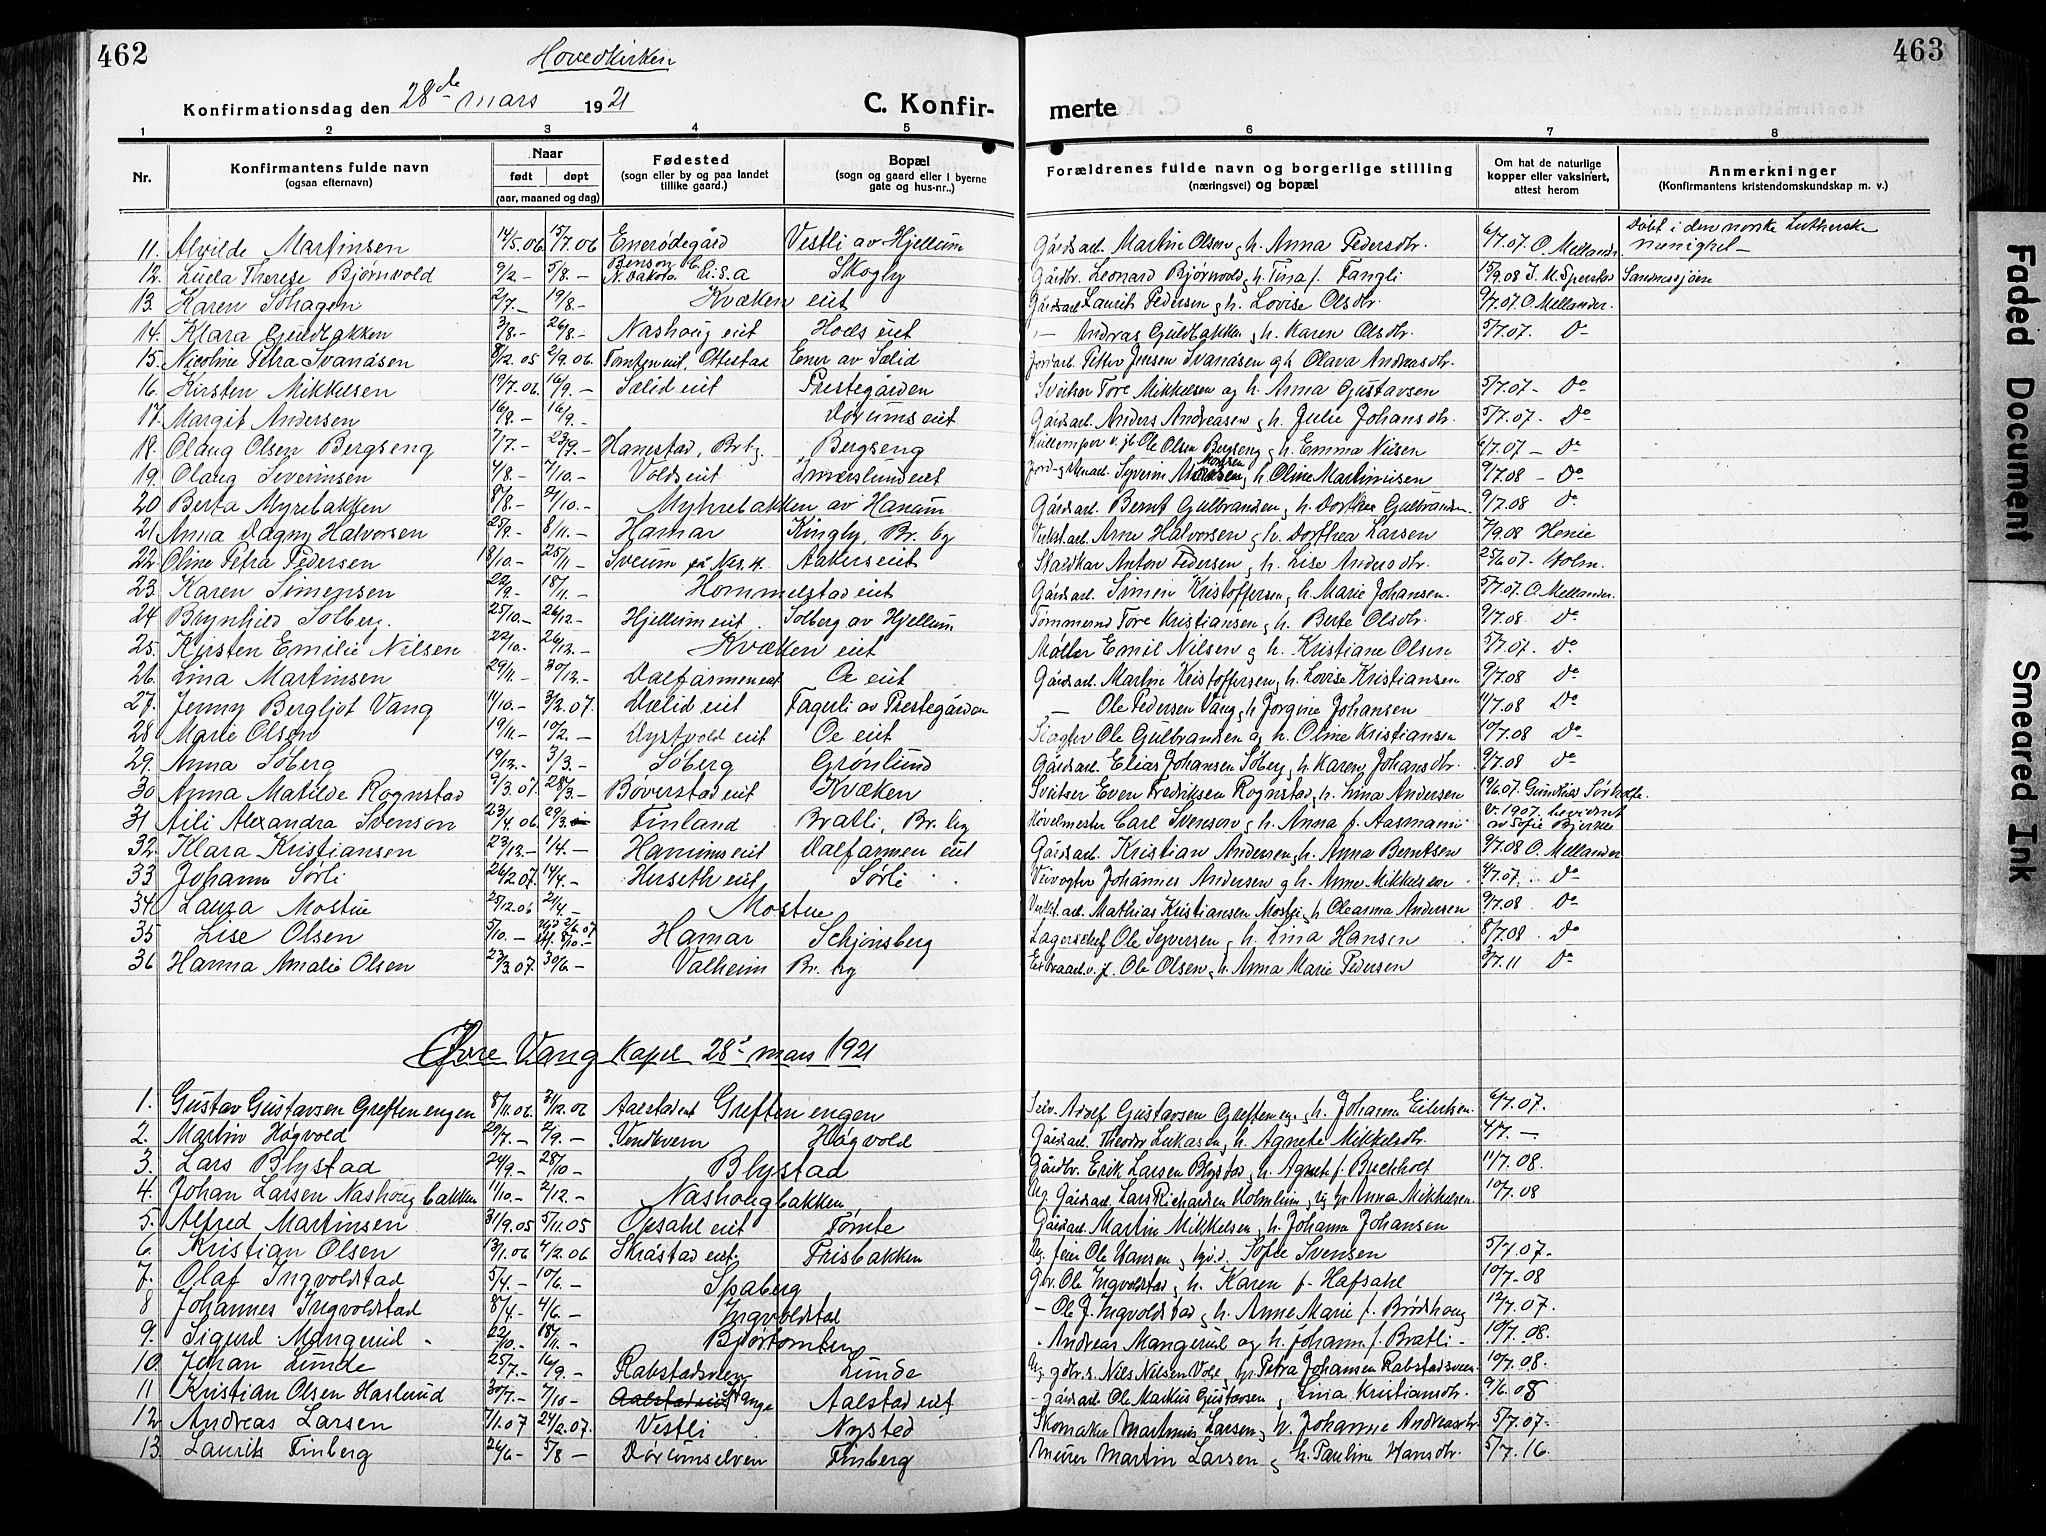 462
Hovedkirken
Konfirmationsdag den 28de mars 1921
C. Konfir-
merte
463
1 2 3 4 5 6 7 8
Nr. Konfirmantens fulde navn (ogsaa efternavn) Naar født døpt (aar, maaned og dag) Fødested (sogn eller by og paa landet tillike gaard.) Bopæl (sogn og gaard eller i byerne gate og hus-nr..) Forældrenes fulde navn og borgerlige stilling (næringsvei) og bopæl Om hat de naturlige kopper eller vaksinert, attest herom Anmerkninger (Konfirmantens kristendomskundskap m. v.)
11. Alvilde Martinsen 14/5.06 15/7.06 Enerødegård Vestli av Hjellum Gårdsarb. Martin Olsen og h. Anna Pedersdtr. 6/7.07. O. Mellander Døbt i den norske Lutherske menighet
12. Luela Therese Bjørnvold 9/2 - 5/8 - Benson N. Dakota U.S.a Skogly Gårdbr. Leonard Bjørnvold og h. Tina f. Fangli 15/9 08 Sandnessjøen
13. Karen Søhagen 2/7 - 19/8 - Kvæken eiet Gårdsarb Laurits Pedersen og h. Lovise Olsdtr. 9/7.07 O. Mellander.
14. Klara Guldbakken 3/8 - 26/8 - Nashoug eiet Hoels eiet - Andreas Guldbakken og h. Karen Olsdtr. 5/7.07. Do
15. Nicoline Petra Svanåsen 8/12 05 2/9.06. Tomter eiet, Ottestad Ener av Sælid Jordarb. Petter Jensen Svanåsen og h Olava Andreasdtr.
16. Kirsten Mikkelsen 19/7.06. 16/9 - Sælid eiet Prestegården Sveitser Tore Mikkelsen og h. Anna Gustavsen 5/7.07 - Do
17. Margit Andersen 16/8 - 16/9 - Dørums eiet Gårdsarb. Anders Andreasen og h. Julie Johansdtr. 5/7.07 - Do
18. Olaug Olsen Bergseng 7/7 - 23/9 - Hanestad, Bergseng Ole Olsen Bergseng og h. Emma Nilsen 6/7.07 - Do
19. Olaug Severinsen 4/8 - 7/10 - Volds eiet Imerslund eiet Syverin og h Oline Martinisen 9/7.08 - Do
20 Berta Myrebakken 8/8 - 21/10 - Myhrebakken av Hanum Gårdsarb. Bernt Gulbrandsen og h. Dorthea Gulbrandsen 9/7.08 Do
21 Anna Dagny Halvorsen 25/9 - 8/11 - Hamar Kingly, Br. by Verkst.arb. Arne Halvorsen og h. Dorthea Larsen 7/9.08 Henie
22 Oline Petra Pedersen 18/10 - 25/11 - Sveum på Nes. H. Aakers eiet Staldkar Anton Pedersen og h. Lise Andersdtr. 25/6 07. Holm.
23. Karen Simensen 22/9 - 18/11 - Hommelstad eiet Gårdsarb. Simen Kristoffersen og h. Marie Johansen. 5/7.07. O. Mellander.
24 Brynhild Solberg. 25/10 - 26/12 - Hjellum eiet Solberg av Hjellum Tømmermd Tore Kristiansen og h. Berte Olsdtr. 9/7.08 Do
25. Kirsten Emilie Nilsen 22/10 - 26/12 - Kvæken eiet Møller Emil Nilsen og h. Kristiane Olsen 5/7.07. Do
26. Lina Martinsen 29/11 - 30/12 - Dalfarmen eiet Oe eiet Gårdsarb. Martin Kristoffersen og h. Lovise Kristiansen 9/7.08 Do
27. Jenny Bergljot Vang 14/10 - 3/2.07. Dælid eiet Fagerli av Prestegården - Ole Pedersen Vang og h Jørgine Johansen 11/7.08 Do
28 Marie Olsen 19/11 - 10/2 - Dystvold eiet Oe eiet Ole Gulbrandsen og h. Oline Kristiansen 10/7.08 Do
29. Anna Søberg 19/12 - 3/3 - Søberg Grønlund Gårdsarb. Elias Johansen Søberg og h. Karen Johansdtr. 9/7.08 Do
30 Anna Matilde Rognstad 9/3.07. 28/3 - Bøverstad eiet Kvæken Sveitser Even Fredriksen Rognstad og h. Lina Andersen 19/6 07.
31 Aili Alexandra Svenson 23/4.06. 29/3 Finland Bratli, Br. by Høvelmester Carl Svenson og h. Anna f. Aasmann V. 1907. bevidnet av Sofie Bjerke
32. Klara Kristiansen 23/12 - 1/4 - Hanums eiet Dalfarmen eiet Gårdsarb. Kristian Andersen og h. Anna Berntsen 9/7.08 O. Mellander
33 Johanna Sørli 26/2 07. 14/4 - Herseth eiet Sørli Veivogter Johannes Andersen og h. Anne Mikkelsen 4/7.07. Do
34 Laura Mostue 25/12.06 21/4 - Mostue Verkst.arb. Mathias Kristiansen Mostue og h Oleanna Andersen 9/7.08 Do
35 Lise Olsen 5/10 - Hjd 21/6.07 Hamar Schjønsberg Lagerchef Ole Syversen og h. Lina Hansen 8/7.08 Do
36 Hanna Amalie Olsen 23/3.07. 30/6 - Valheim Br. by Extraarb. v. J. Ole Olsen og h. Anna Marie Pedersen 3/7.11 Do
Øvre Vang kapel 28de mars 1921
1. Gustav Gustavsen Greftenengen 8/11.06 31/12.06 Aalstad eiet Greftenengen Selv. Adolf Gustavsen Greftenengen og h. Johanna Eilertsen 6/7.07.
2. Martin Høgvold 29/7 - 2/9 - Vendkvern Høgvold Gårdsarb. Theodor Lukasen og h. Agnete Mikkelsdtr. 4/7 -
3. Lars Blystad 24/9 - 28/10 - Blystad Gårdbr. Erik Larsen Blystad og h. Agnete f. Buchholt 11/7.08.
4. Johan Larsen Nashougbakken 11/10 - 2/12 - Nashougbakken Ug. Gårdsarb Lars Richardsen Holmlund, ug. p. Anna Mikkelsen. 10/7.08
5. Alfred Martinsen 31/9.05 5/11.05 Opsahl eiet Tømte Gårdsarb. Martin Mikkelsen og h. Johanna Johansen
6. Kristian Olsen 13/1.06 4/2.06 Skråstad eiet. Frisbakken Ug. feier Ole Hansen og Sofie Svensen 5/7.07 -
7. Olaf Ingvoldstad 5/4 - 10/6 - Spaberg Gbr. Ole Ingvoldstad og h. Karen f. Hafsahl 10/7-08
8 Johannes Ingvoldstad 8/4 - 4/6 - Ingvoldstad - Ole J. Ingvoldstad og h. Anne Marie f. Brødshoug 12/7.07.
9. Sigurd Mangerud - 22/10 - 18/11 - Bjørtomten - Andreas Mangerud og h. Johanne f. Bratli - 10/7.08.
10. Johan Lunde 25/7 - 16/9 - Rabstadsveen Lunde Ug gdbr.s. Nils Nilsen Vold, ug p Petra Johansen Rabstadsveen. 10/7.08.
11 Kristian Olsen Haslund 30/7 - 7/10 - Aalstad eiet Stange Aalstad eiet - gårdsarb. Ole Markus Gustavsen og Lina Kristiansdtr. 9/6.08
12 Andreas Larsen 7/1.07 24/2.07. Vestli Nystad Skomaker Martinus Larsen og h. Johanne Andreasdtr 5/7.07.
13. Laurits Finberg 26/6 - 5/8 - Dørumselven Finberg Murer Martin Larsen og h. Pauline Hansdtr. 5/7.16.
Faded Document
Smeared Ink